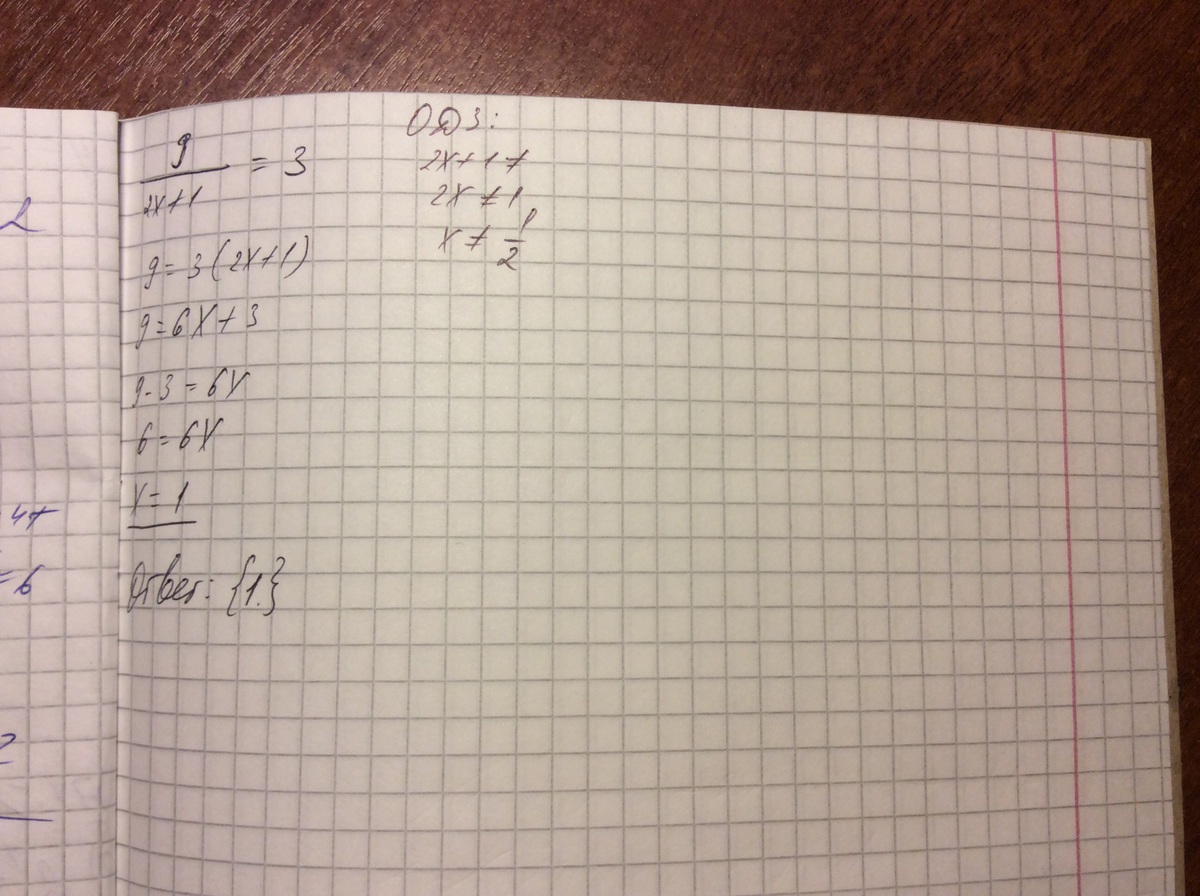 9/(2x+1) = 3
9=3(2x+1)
9=6x+3
9-3=6x
6=6x
x=1
Ответ: {1.}
ОДЗ:
2x+1≠
2x≠1
x≠1/2
2
4+
=6
2